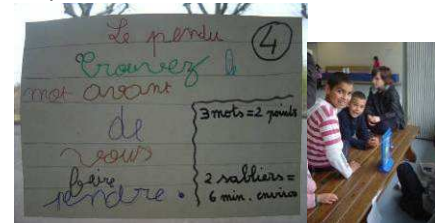 Le pendu
4
Trouvez le
mot avant
de
vous
faire
pendre.
3 mots = 2 points
2 sabliers =
6 min. environ